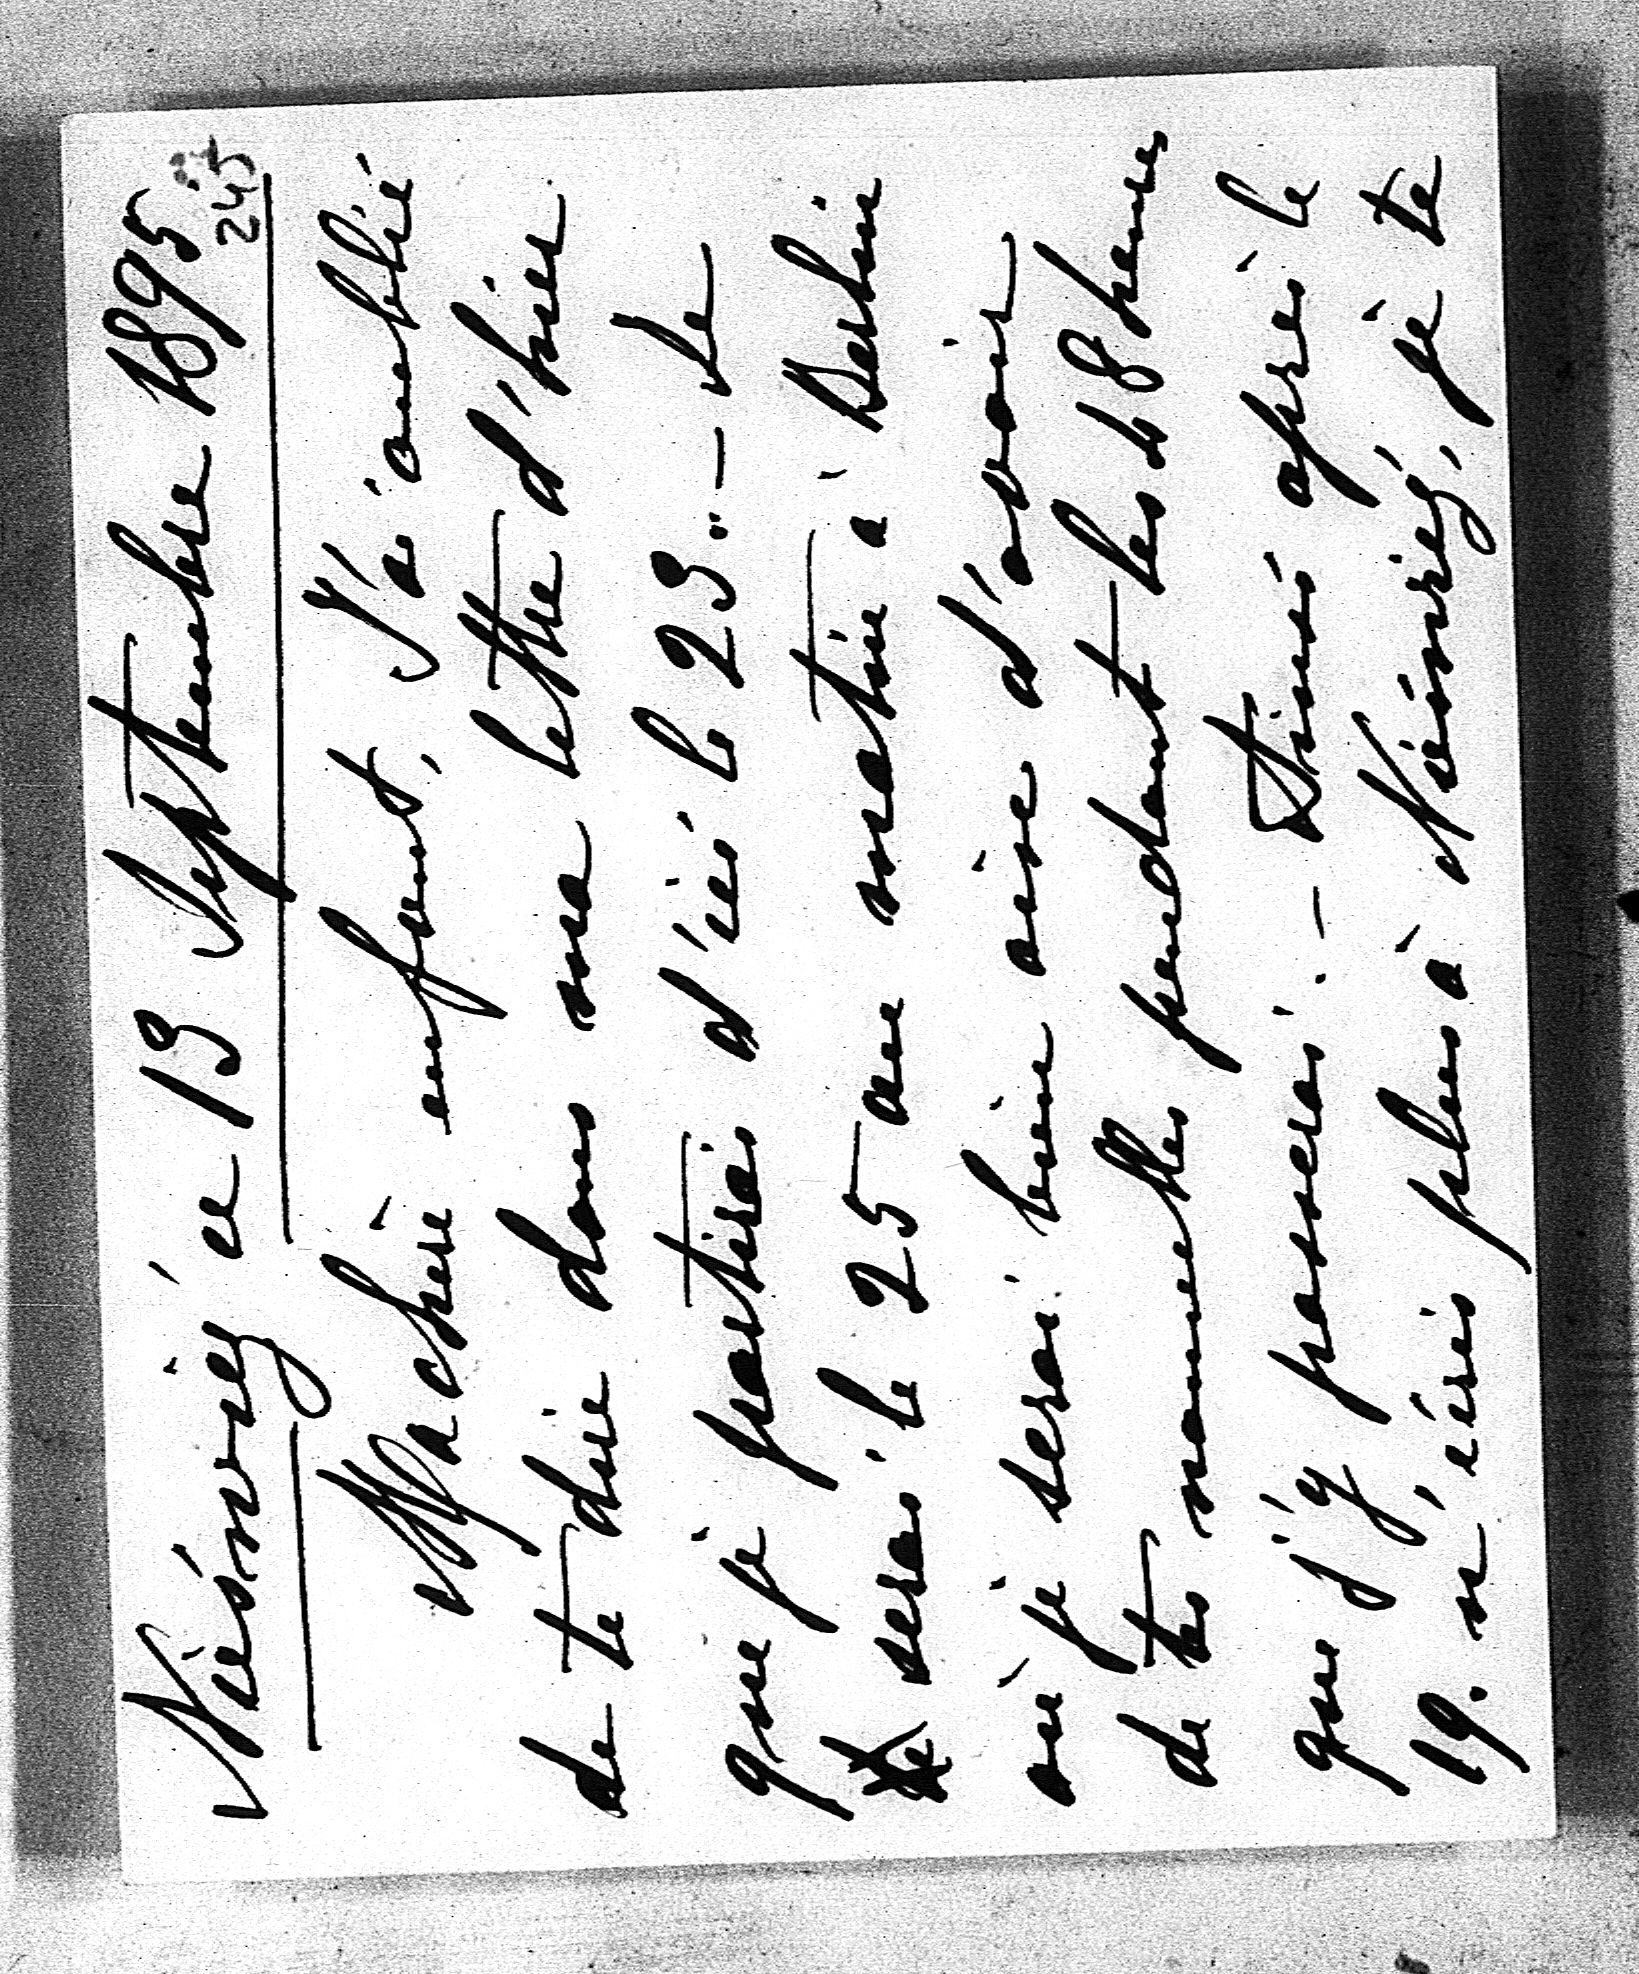 Nieśwież ce 13 Septembre 1895
245
Ma chère enfant, J'ai oublié
de te dire dans ma lettre d'hier
que je partirai d'ici le 23. — Je
serai le 25 au matin à Berlin
où je serai bien aise d'avoir
de tes nouvelles pendant les 48 heures
que j'y passerai. — Ainsi après le
19. n'écris plus à Nieśwież, je te